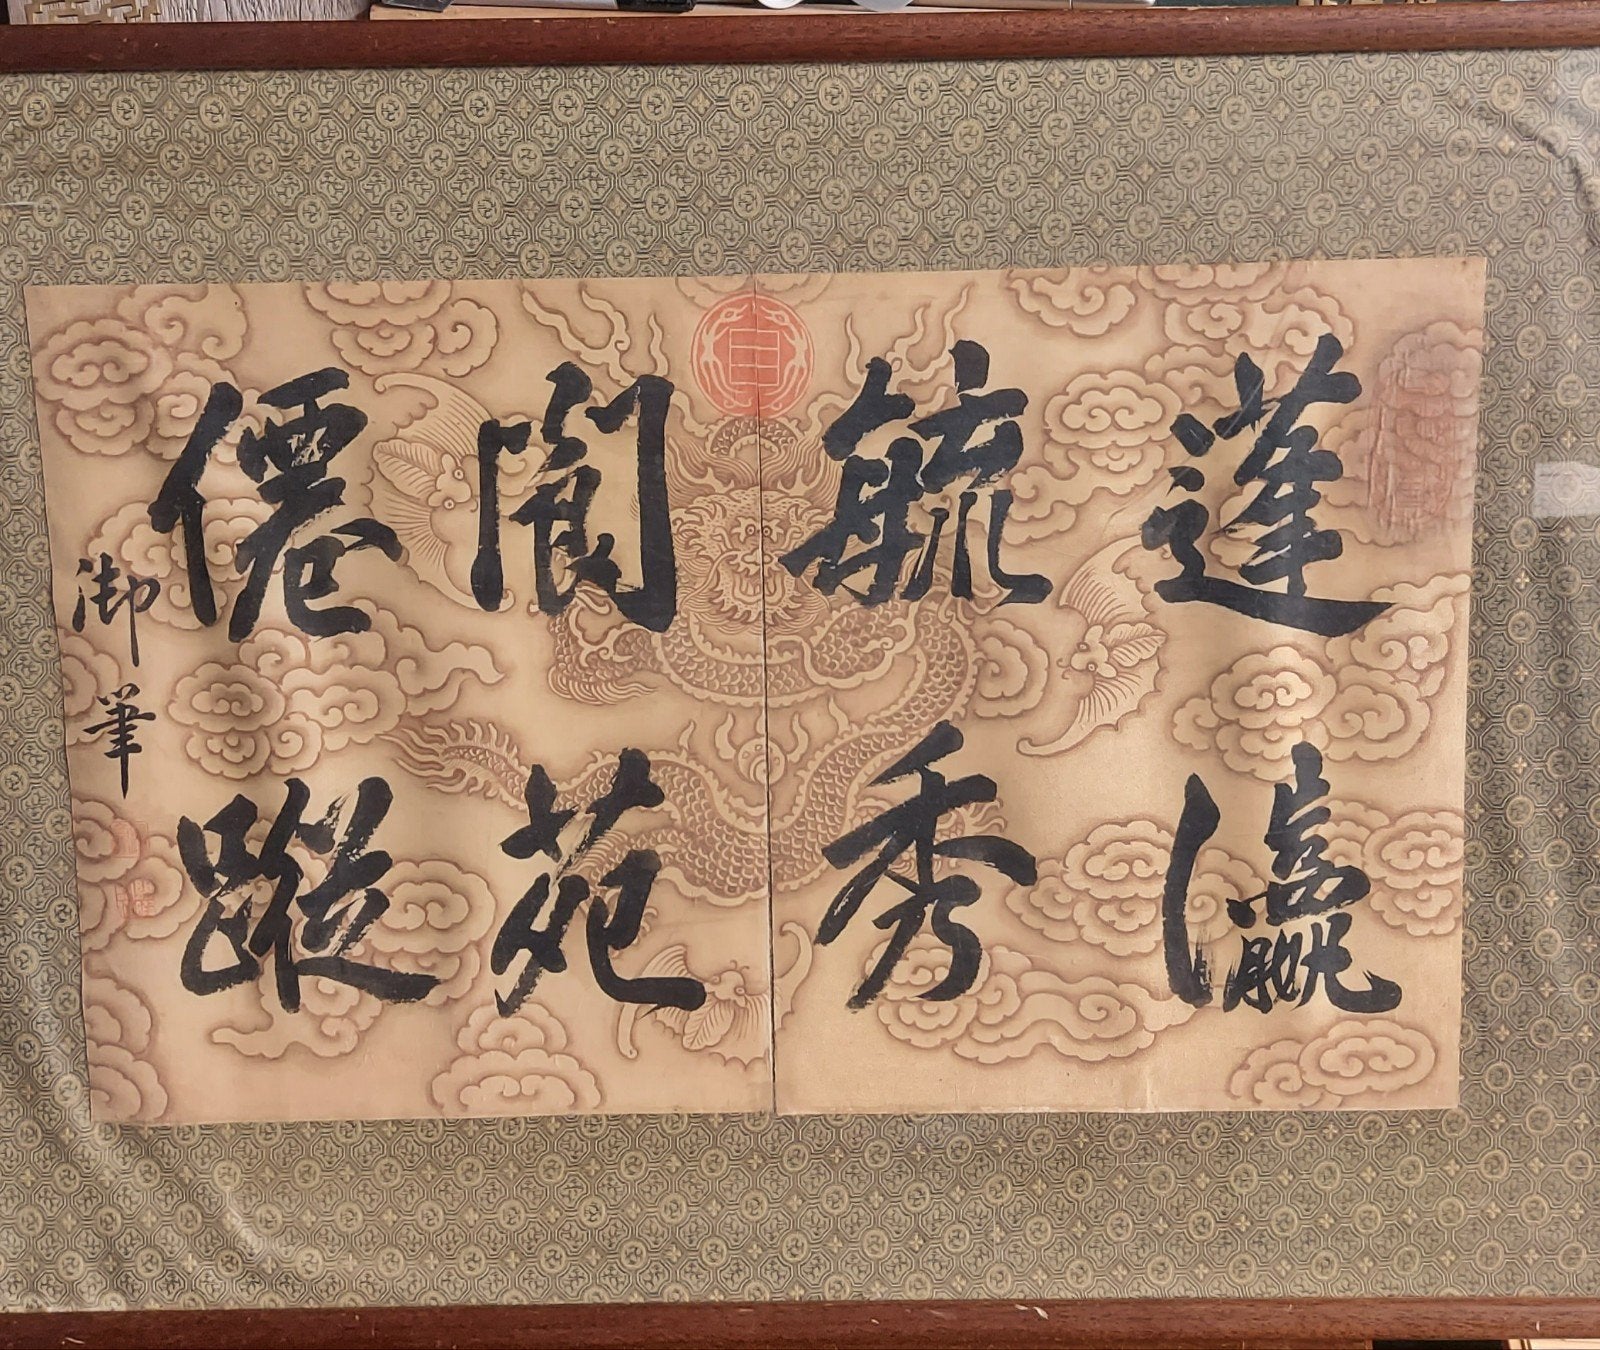 蓬瀛
毓秀
閬苑
僊蹤
御筆